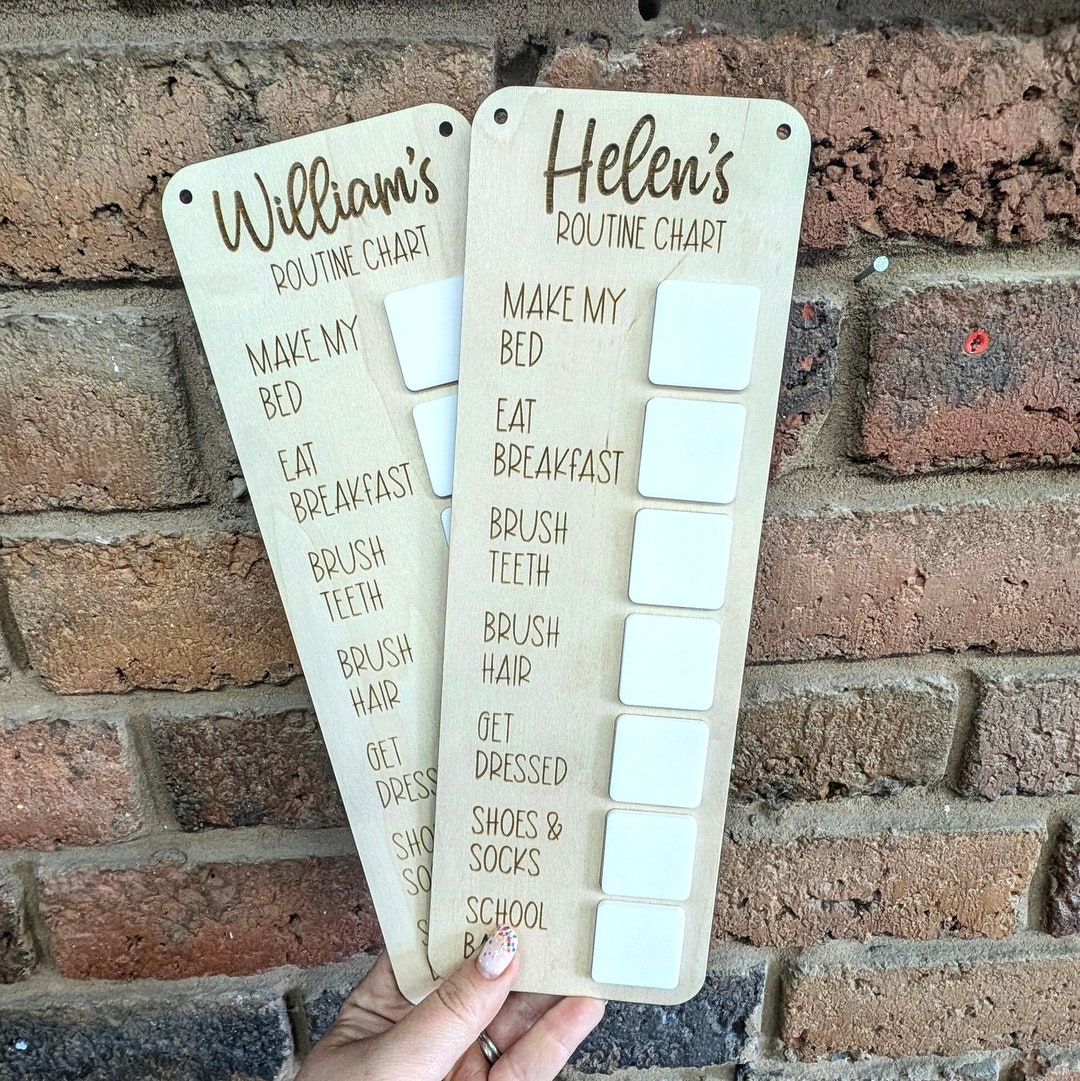 William's
ROUTINE CHART
MAKE MY
BED
EAT
BREAKFAST
BRUSH
TEETH
BRUSH
HAIR
GET
SHOES &
SOCKS
Helen's
ROUTINE CHART
MAKE MY
BED
EAT
BREAKFAST
BRUSH
TEETH
BRUSH
HAIR
GET
DRESSED
SHOES &
SOCKS
SCHOOL